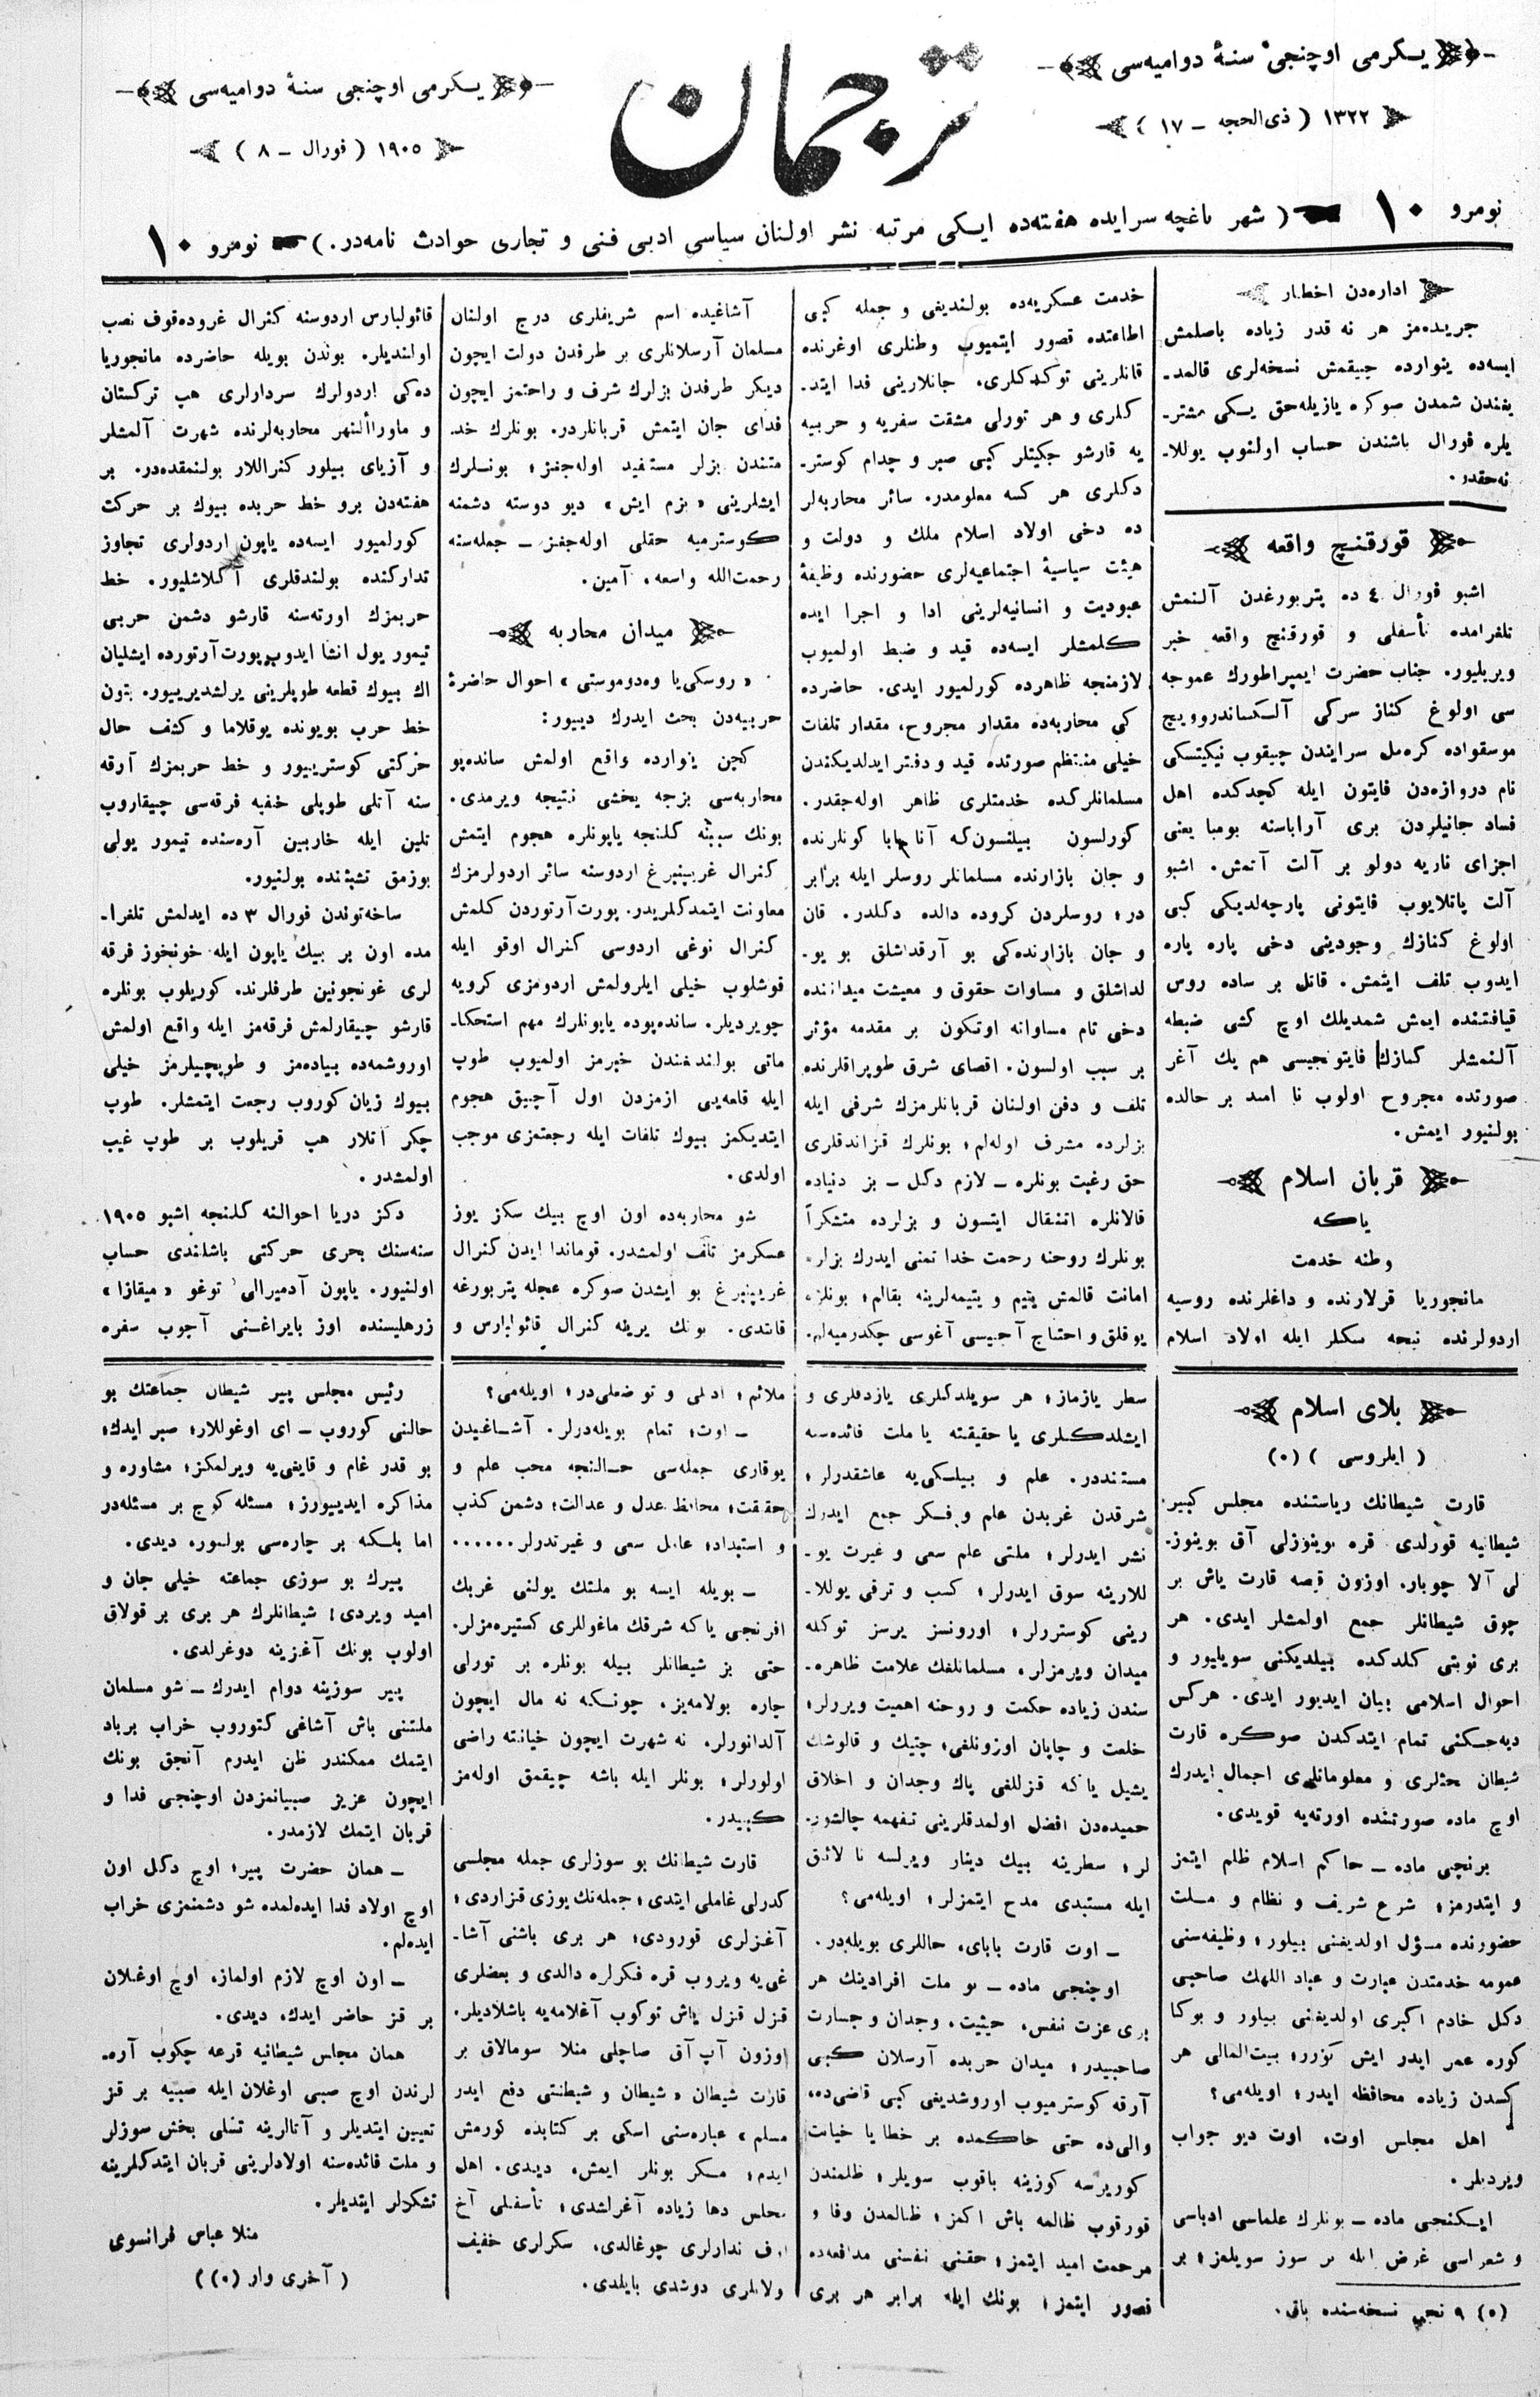 يكرمى اوچنجى سنۀ دواميه‌سى
١٣٢٢ ( ذى‌الحجه – ١٧ )
ترجمان
يكرمى اوچنجى سنۀ دواميه‌سى
١٩٠٥ ( فورال – ٨ )
نومرو ١٠ ( شهر باغچه سرايده هفته‌ده ايكى مرتبه نشر اولنان سياسى ادبى فنى و تجارى حوادث نامه‌در. ) نومرو ١٠
اداره‌دن اخطار
جريده‌مز هر نه قدر زياده باصلمش
ايسه‌ده ينوارده چيقمش نسخه‌لرى قالمد-
يغندن شمدن صوكره يازيله‌حق يسكى مشتر-
يلره فورال باشندن حساب اولنوب يوللا-
نه‌حقدر.
قورقنچ واقعه
اشبو فورال ٤ ده پتربورغدن آلنمش
تلغرامده تأسفلى و قورقنچ واقعه خبر
ويريليور. جناب حضرت ايمپراطورك عموجه
سى اولوغ كناز سركى آلكساندروويچ
موسقواده كره‌مل سرايندن چيقوب نيكيتسكى
نام دروازه‌دن فايتون ايله كچدكده اهل
فساد جانيلردن برى آراباسنه بومبا يعنى
اجزاى ناريه دولو بر آلت آتمش. اشبو
آلت پاتلايوب فايتونى پارچه‌لديكى كبى
اولوغ كنازك وجودينى دخى پاره پاره
ايدوب تلف ايتمش. قاتل بر ساده روس
قيافتنده ايمش شمديلك اوچ كشى ضبطه
آلنمشلر كنازك فايتونجيسى هم يك آغر
صورتده مجروح اولوب نا اميد بر حالده
بولنيور ايمش.
قربان اسلام
ياكه
وطنه خدمت
مانجوريا قرلارنده و داغلرنده روسيه
اردولرنده نيجه سكلر ايله اولاد اسلام
خدمت عسكريه‌ده بولنديغى و جمله كبى
اطاعتده قصور ايتميوب وطنلرى اوغرنده
قانلرينى توكدكلرى، جانلارينى فدا ايتد-
كلرى و هر تورلى مشقت سفريه و حربيه
يه قارشو جكيتلر كبى صبر و چدام كوستر-
دكلرى هر كسه معلومدر. سائر محاربه‌لر
ده دخى اولاد اسلام ملك و دولت و
هيئت سياسيۀ اجتماعيه‌لرى حضورنده وظيفۀ
عبوديت و انسانيه‌لرينى ادا و اجرا ايده
كلمشلر ايسه‌ده قيد و ضبط اولميوب
لازمنجه ظاهرده كورلميور ايدى. حاضرده
كى محاربه‌ده مقدار مجروح، مقدار تلفات
خيلى منتظم صورتده قيد و دفتر ايدلديكندن
مسلمانلركده خدمتلرى ظاهر اوله‌جقدر.
كورلسون بيلنسون‌كه آنا بابا كونلرنده
و جان بازارنده مسلمانلر روسلر ايله برابر
در؛ روسلردن كروده دالده دكلدر. قان
و جان بازارنده‌كى بو آرقداشلق بو يو-
لداشلق و مساوات حقوق و معيشت ميداننده
دخى تام مساوانه اوتكون بر مقدمه مؤثر
بر سبب اولسون. اقصاى شرق طوپراقلرنده
تلف و دفن اولنان قربانلرمزك شرفى ايله
بزلرده مشرف اوله‌لم؛ بونلرك قزاندقلرى
حق رغبت بونلره – لازم دكل – بز دنياده
قالانلره انتقال ايتسون و بزلرده متشكراً
بونلرك روحنه رحمت خدا تمنى ايدرك بزلره
امانت قالمش يتيم و يتيمه‌لرينه بقالم؛ بونلره
يوقلق و احتياج آجيسى آغوسى چكدرميه‌لم.
آشاغيده اسم شريفلرى درج اولنان
مسلمان آرسلانلرى بر طرفدن دولت ايچون
ديكر طرفدن بزلرك شرف و راحتمز ايچون
فداى جان ايتمش قربانلردر. بونلرك خد-
متندن بزلر مستفيد اوله‌جغز؛ بونلرك
ايشلرينى «بزم ايش» ديو دوسته دشمنه
كوسترميه حقلى اوله‌جغز – جمله‌سنه
رحمت‌الله واسعه، آمين.
ميدان محاربه
«روسكى‌يا وه‌دوموستى» احوال حاضرۀ
حربيه‌دن بحث ايدرك دييور:
كچن ينوارده واقع اولمش سانده‌پو
محاربه‌سى بزجه يخشى نتيجه ويرمدى.
بونك سببنه كلنجه ياپونلره هجوم ايتمش
كنرال غريپنبرغ اردوسنه سائر اردولرمزك
معاونت ايتمدكلريدر. پورت آرتوردن كلمش
كنرال نوغى اردوسى كنرال اوقو ايله
قوشلوب خيلى ايلرولمش اردومزى كرويه
چويرديلر. سانده‌پوده ياپونلرك مهم استحكا-
ماتى بولندغندن خبرمز اولميوب طوپ
ايله قلعه‌يى ازمزدن اول آچيق هجوم
ايتديكمز بيوك تلفات ايله رجعتمزى موجب
اولدى.
شو محاربه‌ده اون اوچ بيك سكز يوز
عسكرمز تلف اولمشدر. قوماندا ايدن كنرال
غريپنبرغ بو ايشدن صوكره عجله پتربورغه
قايتدى. بونك يرينه كنرال قائولبارس و
قائولبارس اردوسنه كنرال غروده‌قوف نصب
اولنديلر. بوندن بويله حاضرده مانجوريا
ده‌كى اردولرك سردارلرى هپ تركستان
و ماوراألنهر محاربه‌لرنده شهرت آلمشلر
و آزياى بيلور كنراللار بولنمقده‌در. بر
هفته‌دن برو خط حربده بيوك بر حركت
كورلميور ايسه‌ده ياپون اردولرى تجاوز
تداركنده بولندقلرى آكلاشليور. خط
حربمزك اورته‌سنه قارشو دشمن حربى
تيمور يول انشا ايدوب پورت آرتورده ايشليان
اك بيوك قطعه طوپلرينى يرلشديرييور. بتون
خط حرب بويونده يوقلاما و كشف حال
حركتى كوسترييور و خط حربمزك آرقه
سنه آتلى طوپلى خفيه فرقه‌سى چيقاروب
تلين ايله خاربين آره‌سنده تيمور يولى
بوزمق تشبثنده بولنيور.
ساخه‌توندن فورال ٣ ده ايدلمش تلغرا-
مده اون بر بيك ياپون ايله خونخوز فرقه
لرى غونجولين طرفلرنده كوريلوب بونلره
قارشو چيقارلمش فرقه‌مز ايله واقع اولمش
اوروشمه‌ده پياده‌مز و طوپچيلرمز خيلى
بيوك زيان كوروب رجعت ايتمشلر. طوپ
چكر آتلار هپ قريلوب بر طوپ غيب
اولمشدر.
دكز دريا احوالنه كلنجه اشبو ١٩٠٥
سنه‌سنك بحرى حركتى باشلندى حساب
اولنيور. ياپون آدميرالى توغو «ميقازا»
زرهليسنده اوز بايراغنى آچوب سفره
بلاى اسلام
( ايلروسى ) (٠)
قارت شيطانك رياستنده مجلس كبير
شيطانيه قورلدى قره بوينوزلى آق بوينوز-
لى آلا چوبار، اوزون قصه قارت ياش بر
چوق شيطانلر جمع اولمشلر ايدى. هر
برى نوبتى كلدكده بيلديكنى سويليور و
احوال اسلامى بيان ايديور ايدى. هركس
ديه‌جكنى تمام ايتدكدن صوكره قارت
شيطان حثلرى و معلوماتلرى اجمال ايدرك
اوچ ماده صورتنده اورته‌يه قويدى.
برنجى ماده – حاكم اسلام ظلم ايتمز
و ايتدرمز؛ شرع شريف و نظام و ملت
حضورنده مسؤل اولديغنى بيلور؛ وظيفه‌سنى
عمومه خدمتدن عبارت و عباد اللهك صاحبى
دكل خادم اكبرى اولديغنى بيلور و بوكا
كوره عمر ايدر ايش كورر؛ بيت‌المالى هر
كسدن زياده محافظه ايدر؛ اويله‌مى؟
اهل مجلس اوت، اوت ديو جواب
ويرديلر.
ايكنجى ماده – بونلرك علماسى ادباسى
و شعراسى غرض ايله بر سوز سويلمز؛ بر
(٥) ٩ نجى نسخه‌سنده باق.
سطر يازماز؛ هر سويلدكلرى يازدقلرى و
ايشلدكلرى يا حقيقته يا ملت فائده‌سنه
مستنددر. علم و بيلكى‌يه عاشقدرلر؛
شرقدن غربدن علم و فكر جمع ايدرك
نشر ايدرلر؛ ملتى علم سعى و غيرت يو-
للارينه سوق ايدرلر؛ كسب و ترقى يوللا-
رينى كوستررلر؛ اورونسز يرسز توكله
ميدان ويرمزلر، مسلمانلغك علامت ظاهره-
سندن زياده حكمت و روحنه اهميت ويررلر؛
خلعت و چاپان اوزونلغى، چتيك و قالوشك
يشيل ياكه قزللغى پاك وجدان و اخلاق
حميده‌دن افضل اولمدقلرينى تفهمه چالشور-
لر؛ سطرينه بيك دينار ويرلسه نا لائق
ايله مستبدى مدح ايتمزلر؛ اويله‌مى؟
– اوت قارت باباى، حاللرى بويله‌در.
اوچنجى ماده – بو ملت افرادينك هر
برى عزت نفس، حيثيت، وجدان و جسارت
صاحبيدر؛ ميدان حربده آرسلان كبى
آرقه كوسترميوب اوروشديغى كبى قاضى‌ده،
والى‌ده حتى حاكمده بر خطا يا خيانت
كوررسه كوزينه باقوب سويلر؛ ظلمندن
قورقوب ظالمه باش اكمز؛ ظالمدن وفا و
مرحمت اميد ايتمز؛ حقنى نفسنى مدافعه‌ده
قصور ايتمز؛ بونك ايله برابر هر برى
ملائم؛ ادبلى و تو ضعلى‌در؛ اويله‌مى؟
– اوت؛ تمام بويله‌درلر. آشاغيدن
يوقارى جمله‌سى حالنجه محب علم و
حقيقت؛ محافظ عدل و عدالت؛ دشمن كذب
و استبداد؛ عامل سعى و غيرتدرلر......
– بويله ايسه بو ملتك يولنى غربك
افرنجى ياكه شرقك ماغوللرى كستيره‌مزلر.
حتى بز شيطانلر بيله بونلره بر تورلى
چاره بولامه‌يز، چونكه نه مال ايچون
آلدانورلر، نه شهرت ايچون خيانته راضى
اولورلر؛ بونلر ايله باشه چيقمق اوله‌مز
كبيدر.
قارت شيطانك بو سوزلرى جمله مجلسى
كدرلى غاملى ايتدى؛ جمله‌نك يوزى قزاردى؛
آغزلرى قورودى؛ هر برى باشنى آشا-
غى‌يه ويروب قره فكرلره دالدى و بعضلرى
قنزل قنزل ياش توكوب آغلامه‌يه باشلاديلر.
اوزون آپ آق صاچلى منلا سومالاق بر
قارت شيطان «شيطان و شيطنتى دفع ايدر
مسلم» عباره‌سنى اسكى بر كتابده كورمش
ايدم؛ مكر بونلر ايمش، ديدى. اهل
مجلس دها زياده آغرلشدى؛ تأسفلى آخ
اوف ندارلرى چوغالدى، سكرلرى خفيف
ولانلرى دوشدى بايلدى.
رئيس مجلس پير شيطان جماعتك بو
حالنى كوروب – اى اوغوللار؛ صبر ايدك؛
بو قدر غام و قايغى‌يه ويرلمكز؛ مشاوره و
مذاكره ايدييورز؛ مسئله كوچ بر مسئله‌در
اما بلكه بر چاره‌سى بولنور، ديدى.
پيرك بو سوزى جماعته خيلى جان و
اميد ويردى؛ شيطانلرك هر برى بر قولاق
اولوب بونك آغزينه دوغرلدى.
پير سوزينه دوام ايدرك – شو مسلمان
ملتنى باش آشاغى كتوروب خراب برباد
ايتمك ممكندر ظن ايدرم آنجق بونك
ايچون عزيز صبيانمزدن اوچنجى فدا و
قربان ايتمك لازمدر.
– همان حضرت پير؛ اوچ دكل اون
اوچ اولاد فدا ايده‌لمده شو دشمنمزى خراب
ايده‌لم.
– اون اوچ لازم اولماز، اوچ اوغلان
بر قز حاضر ايدك، ديدى.
همان مجلس شيطانيه قرعه چكوب آره-
لرندن اوچ صبى اوغلان ايله صبيه بر قز
تعيين ايتديلر و آنالرينه تسلى بخش سوزلر
و ملت فائده‌سنه اولادلرينى قربان ايتدكلرينه
تشكرلر ايتديلر.
منلا عباس فرانسوى
( آخرى وار (٠) )